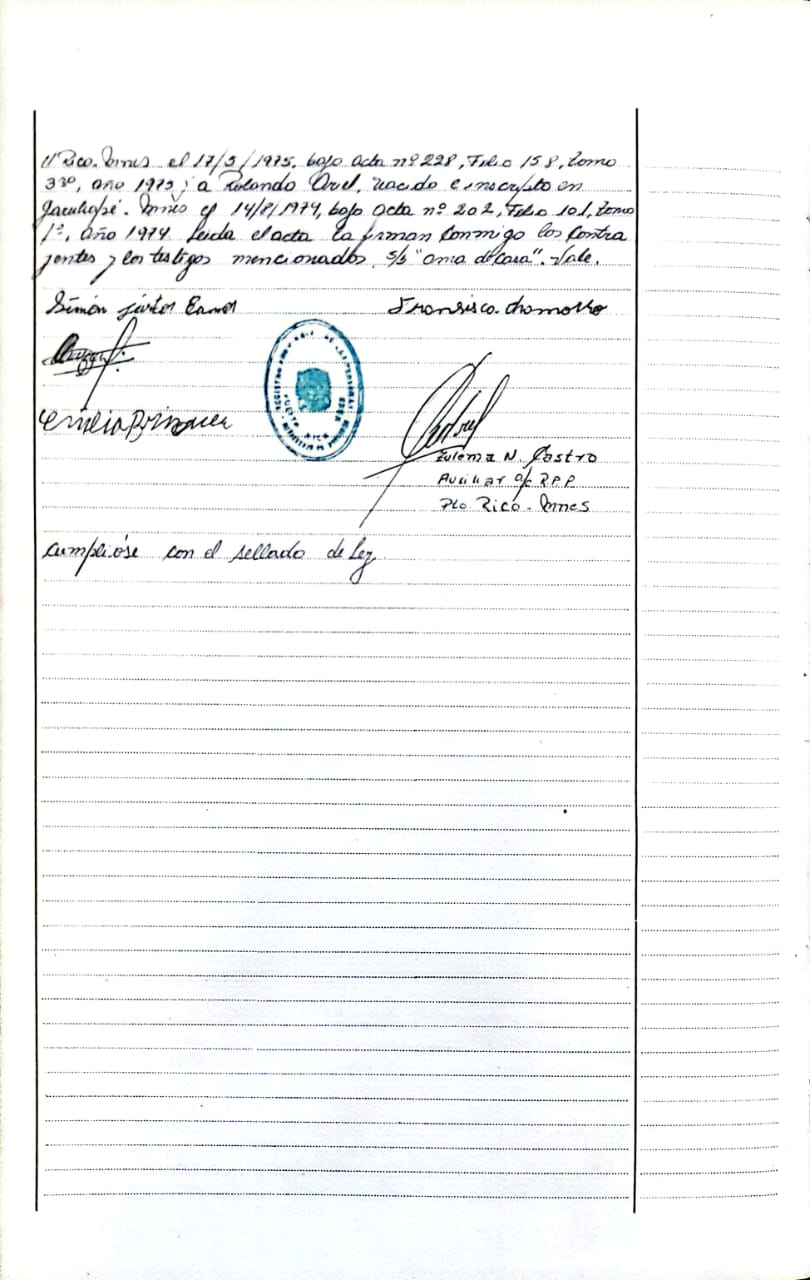 // Rico. Mnes el 17/5/1975, bajo acta nº 228, Folio 158, tomo
3º, año 1975; a Rolando Oriel, nacido e inscripto en
Garuhapé. Mnes el 14/8/1974, bajo acta nº 202, Folio 101, tomo
1º, año 1974. Leida el acta la firman conmigo los contra
yentes y los testigos mencionados. s/b "ama de casa". Vale.
Simón
Francisco
Zulema N. Castro
Auxiliar a/c R.P.P.
Pto Rico - Mnes
PUERTO RICO
cumplióse con el sellado de Ley